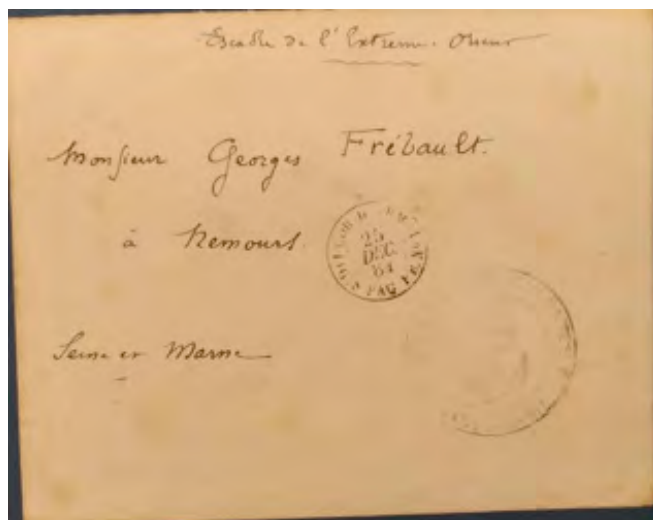 Escadre de l'Extreme-Orient
Monsieur Georges Frébault.
à Nemours.
25
DEC.
84
Seine et Marne